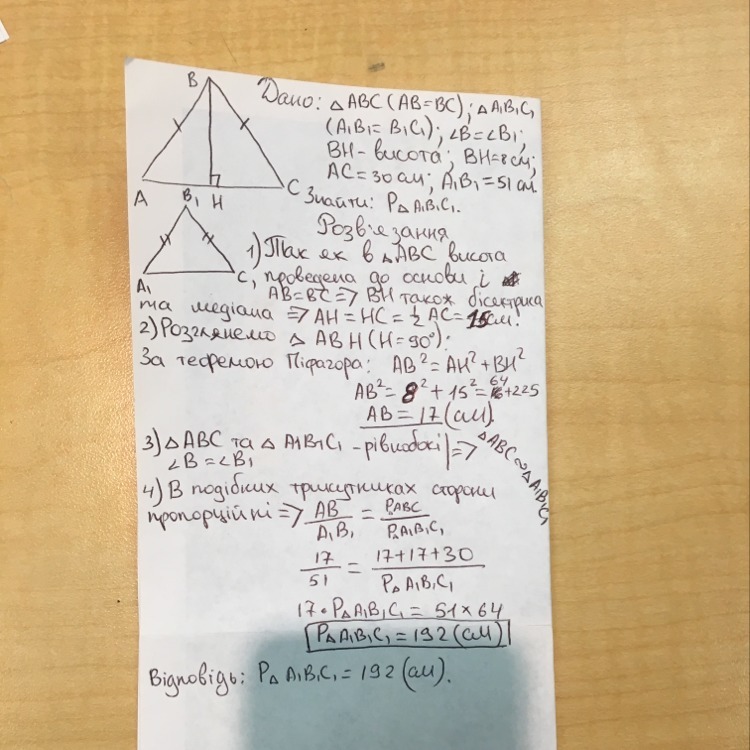 B
A H C
B₁
A₁ C₁
Дано: △ABC (AB=BC); △A₁B₁C₁
(A₁B₁=B₁C₁); ∠B=∠B₁;
BH - висота; BH=8см;
AC=30см; A₁B₁=51см
Знайти: P△A₁B₁C₁.
Розв'язання
1) Так як в △ABC висота
проведена до основи і
AB=BC => BH також бісектриса
та медіана => AH=HC=½AC=15см.
2) Розглянемо △ABH (H=90°):
За теоремою Піфагора: AB²=AH²+BH²
AB²=8²+15²=64+225
AB=17(см)
3) △ABC та △A₁B₁C₁ - рівнобокі
∠B=∠B₁ => △ABC∾△A₁B₁C₁
4) В подібних трикутниках сторони
пропорційні => AB/A₁B₁ = P△ABC/P△A₁B₁C₁
17/51 = 17+17+30/P△A₁B₁C₁
17•P△A₁B₁C₁=51×64
P△A₁B₁C₁=192(см)
Відповідь: P△A₁B₁C₁=192(см).